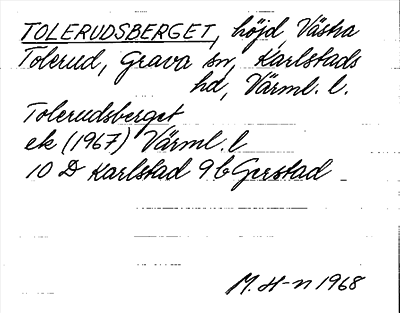 TOLERUDSBERGET, höjd, Västra
Tolerud, Grava sn, Karlstads
hd, Värml. l.
Tolerudsberget
ek (1967) Värml. l
10 D Karlstad 9 b Gerstad
M. H-n 1968